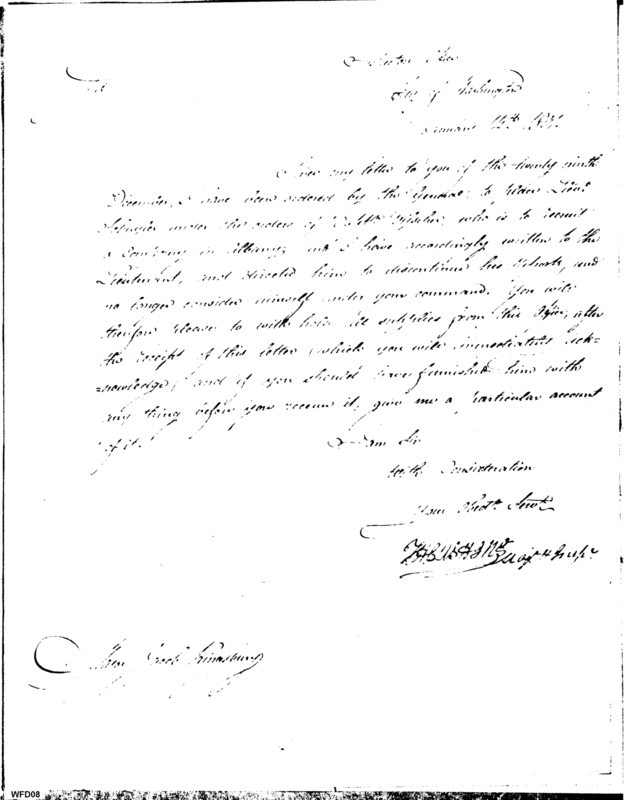 Inspectors Office
City of Washington
January 12th 180
Sir
Since my letter to you of the twenty ninth
December, I have been ordered by the General to order Lieut
under the orders of who is to recruit
a Company in Albany; and I have accordingly written to the
Lieutenant, and directed him to discontinue his and
no longer consider himself under your command. You will
therefore please to with hold all supplies from this Officer, after
the receipt of this letter, (which you will immediately ack-
=nowledge,) and if you should have furnished him with
any thing before you receive it, give me a particular account
of it.
I am Sir
With Consideration
Your Obedt. Servt.
Adjt & Inspr
Jacob Kingsbury
WFD08